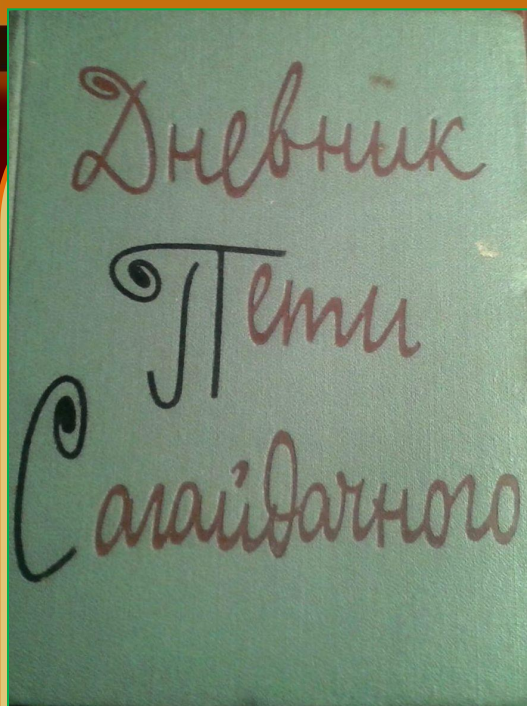 Дневник
Пети
Сагайдачного